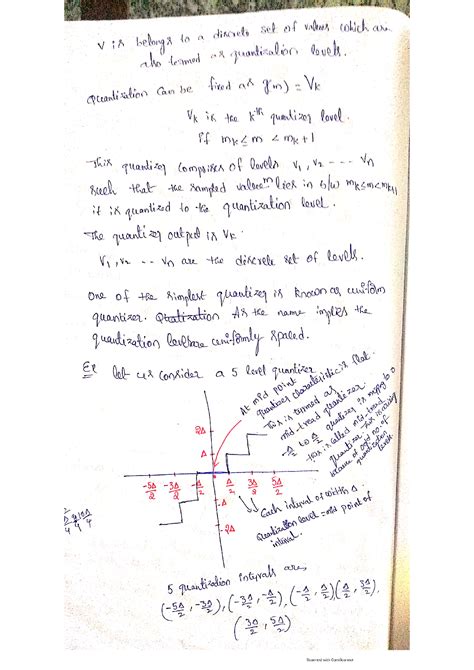 V is belongs to a discrete set of values which are
also termed as quantization levels.
Quantization can be fixed as g(m) = Vk
Vk is the kth quantizer level.
if mk ≤ m < mk+1
This quantizer comprises of levels V1, V2 --- Vn
such that the sampled value m lies in b/w mk≤m<mk+1
it is quantized to the quantization level.
The quantizer output is Vk.
V1, V2 -- Vn are the discrete set of levels.
One of the simplest quantizer is known as uniform
quantizer. As the name implies the
quantization levels are uniformly spaced.
Ex let us consider a 5 level quantizer
At mid point
quantizer characteristic is flat.
This is termed as
mid-tread quantizer
-Δ/2 to Δ/2 quantizer is mapping to 0
this is called mid-tread
quantizer. This is
because of odd no. of
quantization
levels
2Δ
Δ
-5Δ/2 -3Δ/2 -Δ/2 Δ/2 3Δ/2 5Δ/2
-Δ
-2Δ
Each interval is width Δ.
Quantization level = mid point of
interval.
5 quantization intervals are,
(-5Δ/2, -3Δ/2), (-3Δ/2, -Δ/2), (-Δ/2, Δ/2) (Δ/2, 3Δ/2),
(3Δ/2, 5Δ/2)
Scanned with CamScanner